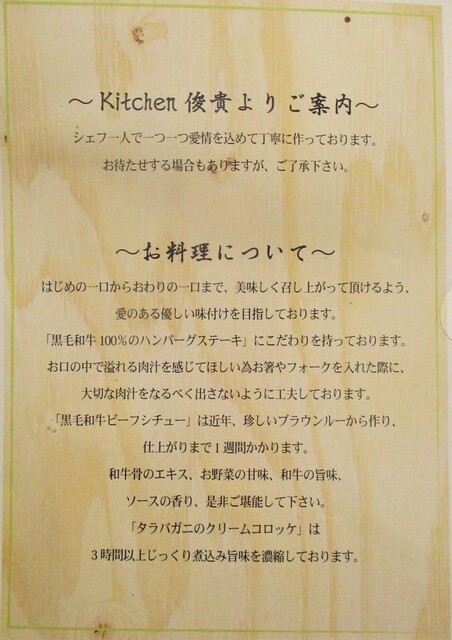 ～Kitchen 俊貴よりご案内～
シェフ一人で一つ一つ愛情を込めて丁寧に作っております。
お待たせする場合もありますが、ご了承下さい。
～お料理について～
はじめの一口からおわりの一口まで、美味しく召し上がって頂けるよう、
愛のある優しい味付けを目指しております。
「黒毛和牛100％のハンバーグステーキ」にこだわりを持っております。
お口の中で溢れる肉汁を感じてほしい為お箸やフォークを入れた際に、
大切な肉汁をなるべく出さないように工夫しております。
「黒毛和牛ビーフシチュー」は近年、珍しいブラウンルーから作り、
仕上がりまで1週間かかります。
和牛骨のエキス、お野菜の甘味、和牛の旨味、
ソースの香り、是非ご堪能して下さい。
「タラバガニのクリームコロッケ」は
3時間以上じっくり煮込み旨味を濃縮しております。